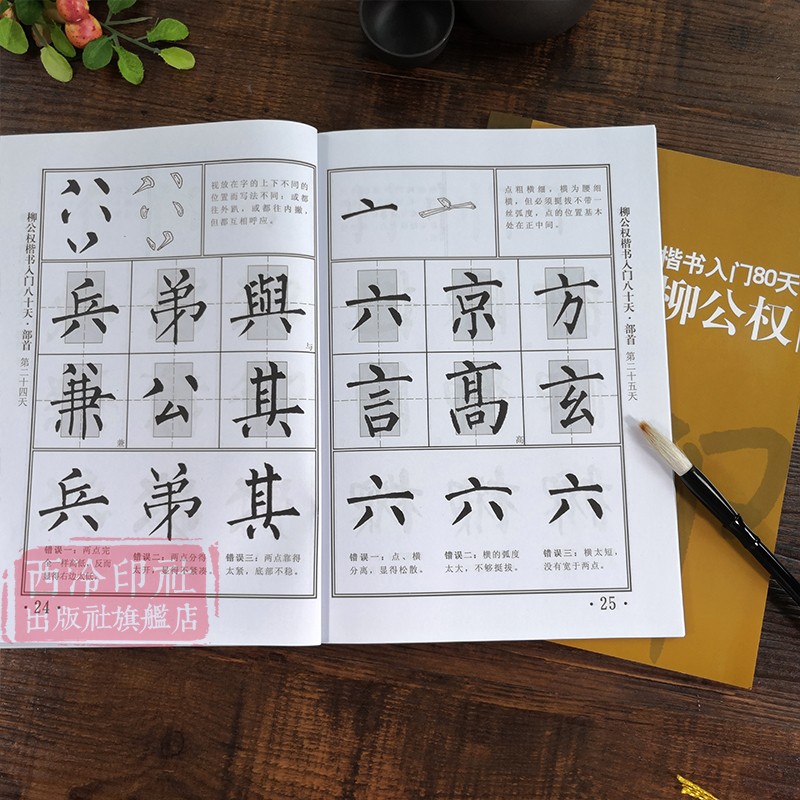 柳公权楷书入门八十天·部首 第二十四天
视放在字的上下不同的
位置而写法不同：或都
往外趴，或都往内撇，
但都互相呼应。
兵 弟 與
与
兼 公 其
兼
兵 弟 其
错误一：两点完
全一样高低，反而
显得右边太低。
错误二：两点分得
太开，显得不紧凑。
错误三：两点靠得
太紧，底部不稳。
·24·
点粗横细，横为腰细
横，但必须挺拔不带一
丝弧度，点的位置基本
处在正中间。
六 京 方
言 高 玄
高
六 六 六
错误一：点、横
分离，显得松散。
错误二：横的弧度
太大，不够挺拔。
错误三：横太短，
没有宽于两点。
·25·
柳公权楷书入门八十天·部首 第二十五天
楷书入门80天
柳公权
西泠印社
出版社旗艦店